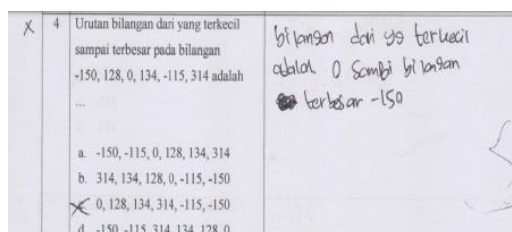 X 4 Urutan bilangan dari yang terkecil
sampai terbesar pada bilangan
-150, 128, 0, 134, -115, 314 adalah
...
a. -150, -115, 0, 128, 134, 314
b. 314, 134, 128, 0, -115, -150
0, 128, 134, 314, -115, -150
d. -150, -115, 314, 134, 128, 0
bilangan dari yg terkecil
adalah 0 sampai bilangan
terbesar -150